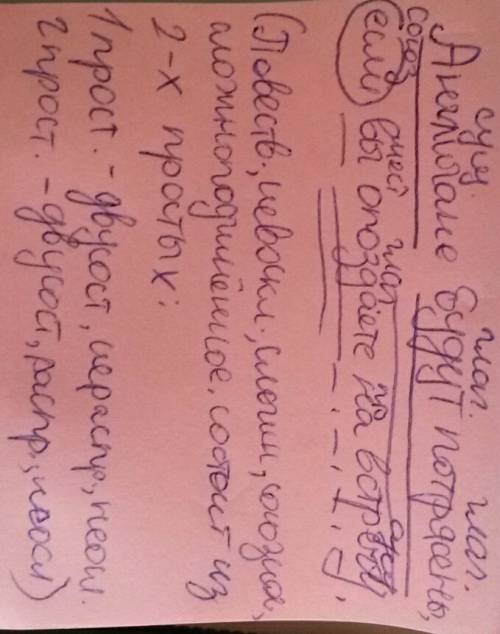 сущ. глаг. глаг.
Англичане будут потрясены,
союз мест. глаг. пр. сущ.
(если) вы опоздаете на встречу.
(Повеств., невоскл., сложн., союзное,
сложноподчинённое, состоит из
2-х простых:
1 прост. - двусост, нераспр, неосл.
2 прост. - двусост, распр, неосл)